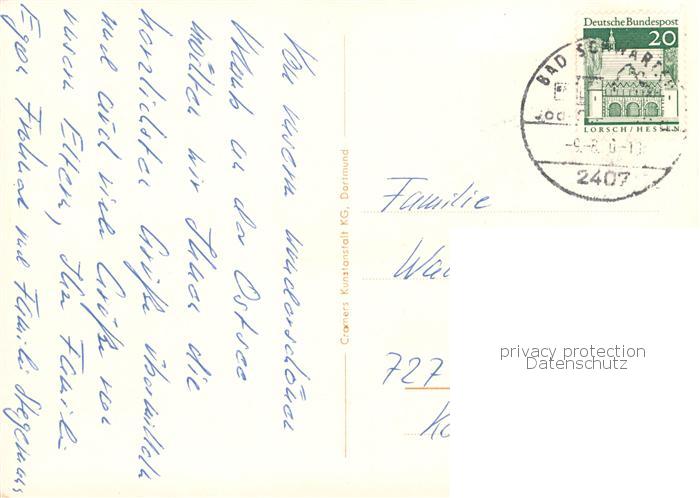 Von unserem wunderschönen
Urlaub an der Ostsee
möchten wir Ihnen die
herzlichsten Grüße übermitteln
und auch viele Grüße von
unseren Eltern, Ihre Familie
Egon Frohlied und Familie Stegemann
Cramers Kunstanstalt KG, Dortmund
Deutsche Bundespost
20
LORSCH/HESSEN
BAD SCHWARTAU
Jod-
2407
Familie
727
privacy protection
Datenschutz